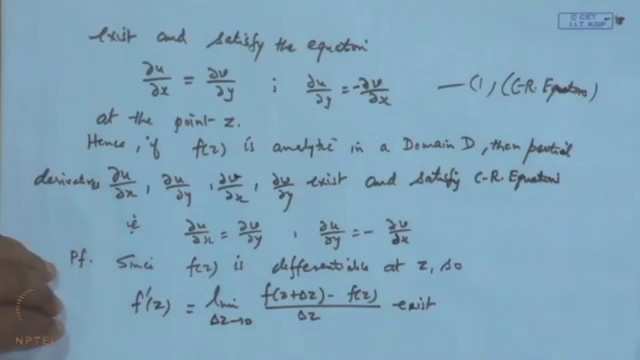 © CET
I.I.T. KGP
exist and satisfy the equation
∂u/∂x = ∂v/∂y ; ∂u/∂y = -∂v/∂x —(1) (C-R. Equations)
at the point z.
Hence, if f(z) is analytic in a Domain D, then partial
derivatives ∂u/∂x, ∂u/∂y, ∂v/∂x, ∂v/∂y exist and satisfy C-R. Equations
ie ∂u/∂x = ∂v/∂y , ∂u/∂y = - ∂v/∂x
Pf. Since f(z) is differentiable at z, so
f'(z) = lim Δz→0 (f(z+Δz) - f(z))/Δz exist
NPTEL